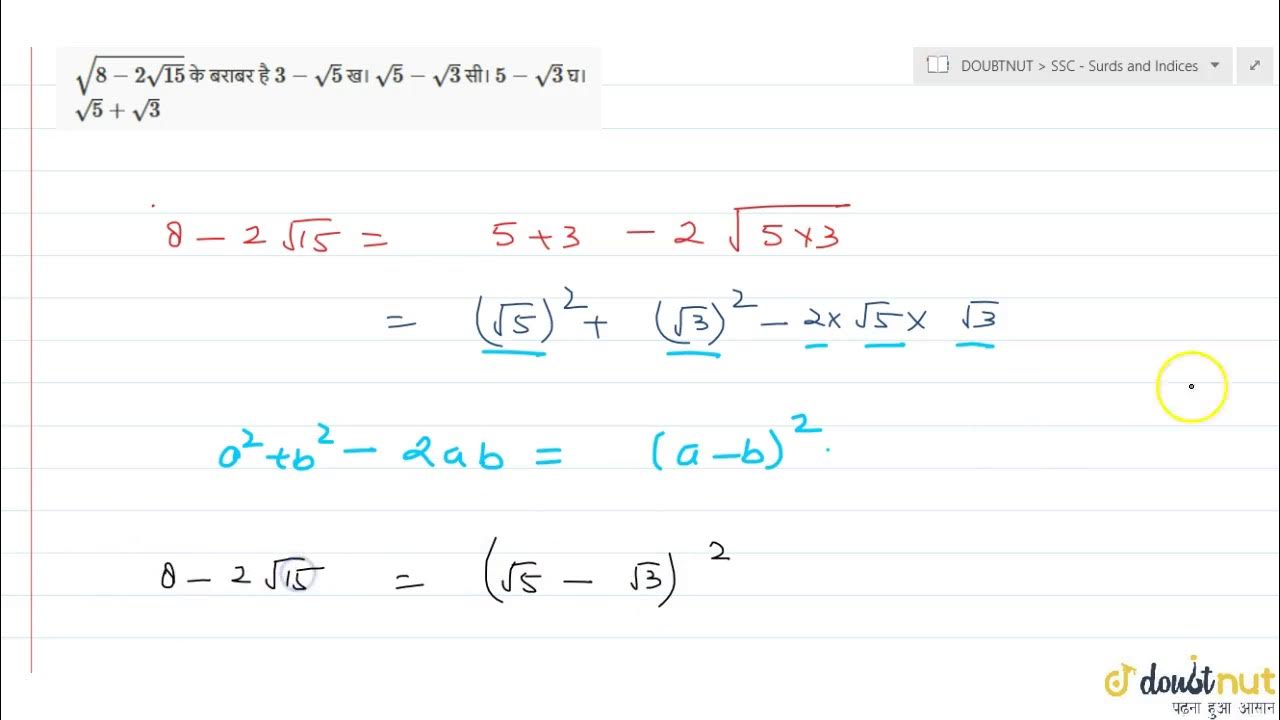 √(8 − 2√15) के बराबर है 3 − √5 ख। √5 − √3 सी। 5 − √3 घ।
√5 + √3
DOUBTNUT > SSC - Surds and Indices
8 − 2 √15 = 5 + 3 − 2 √(5 × 3)
= (√5)² + (√3)² − 2 × √5 × √3
a² + b² − 2ab = (a − b)²
8 − 2 √15 = (√5 − √3)²
doubtnut
पढ़ना हुआ आसान